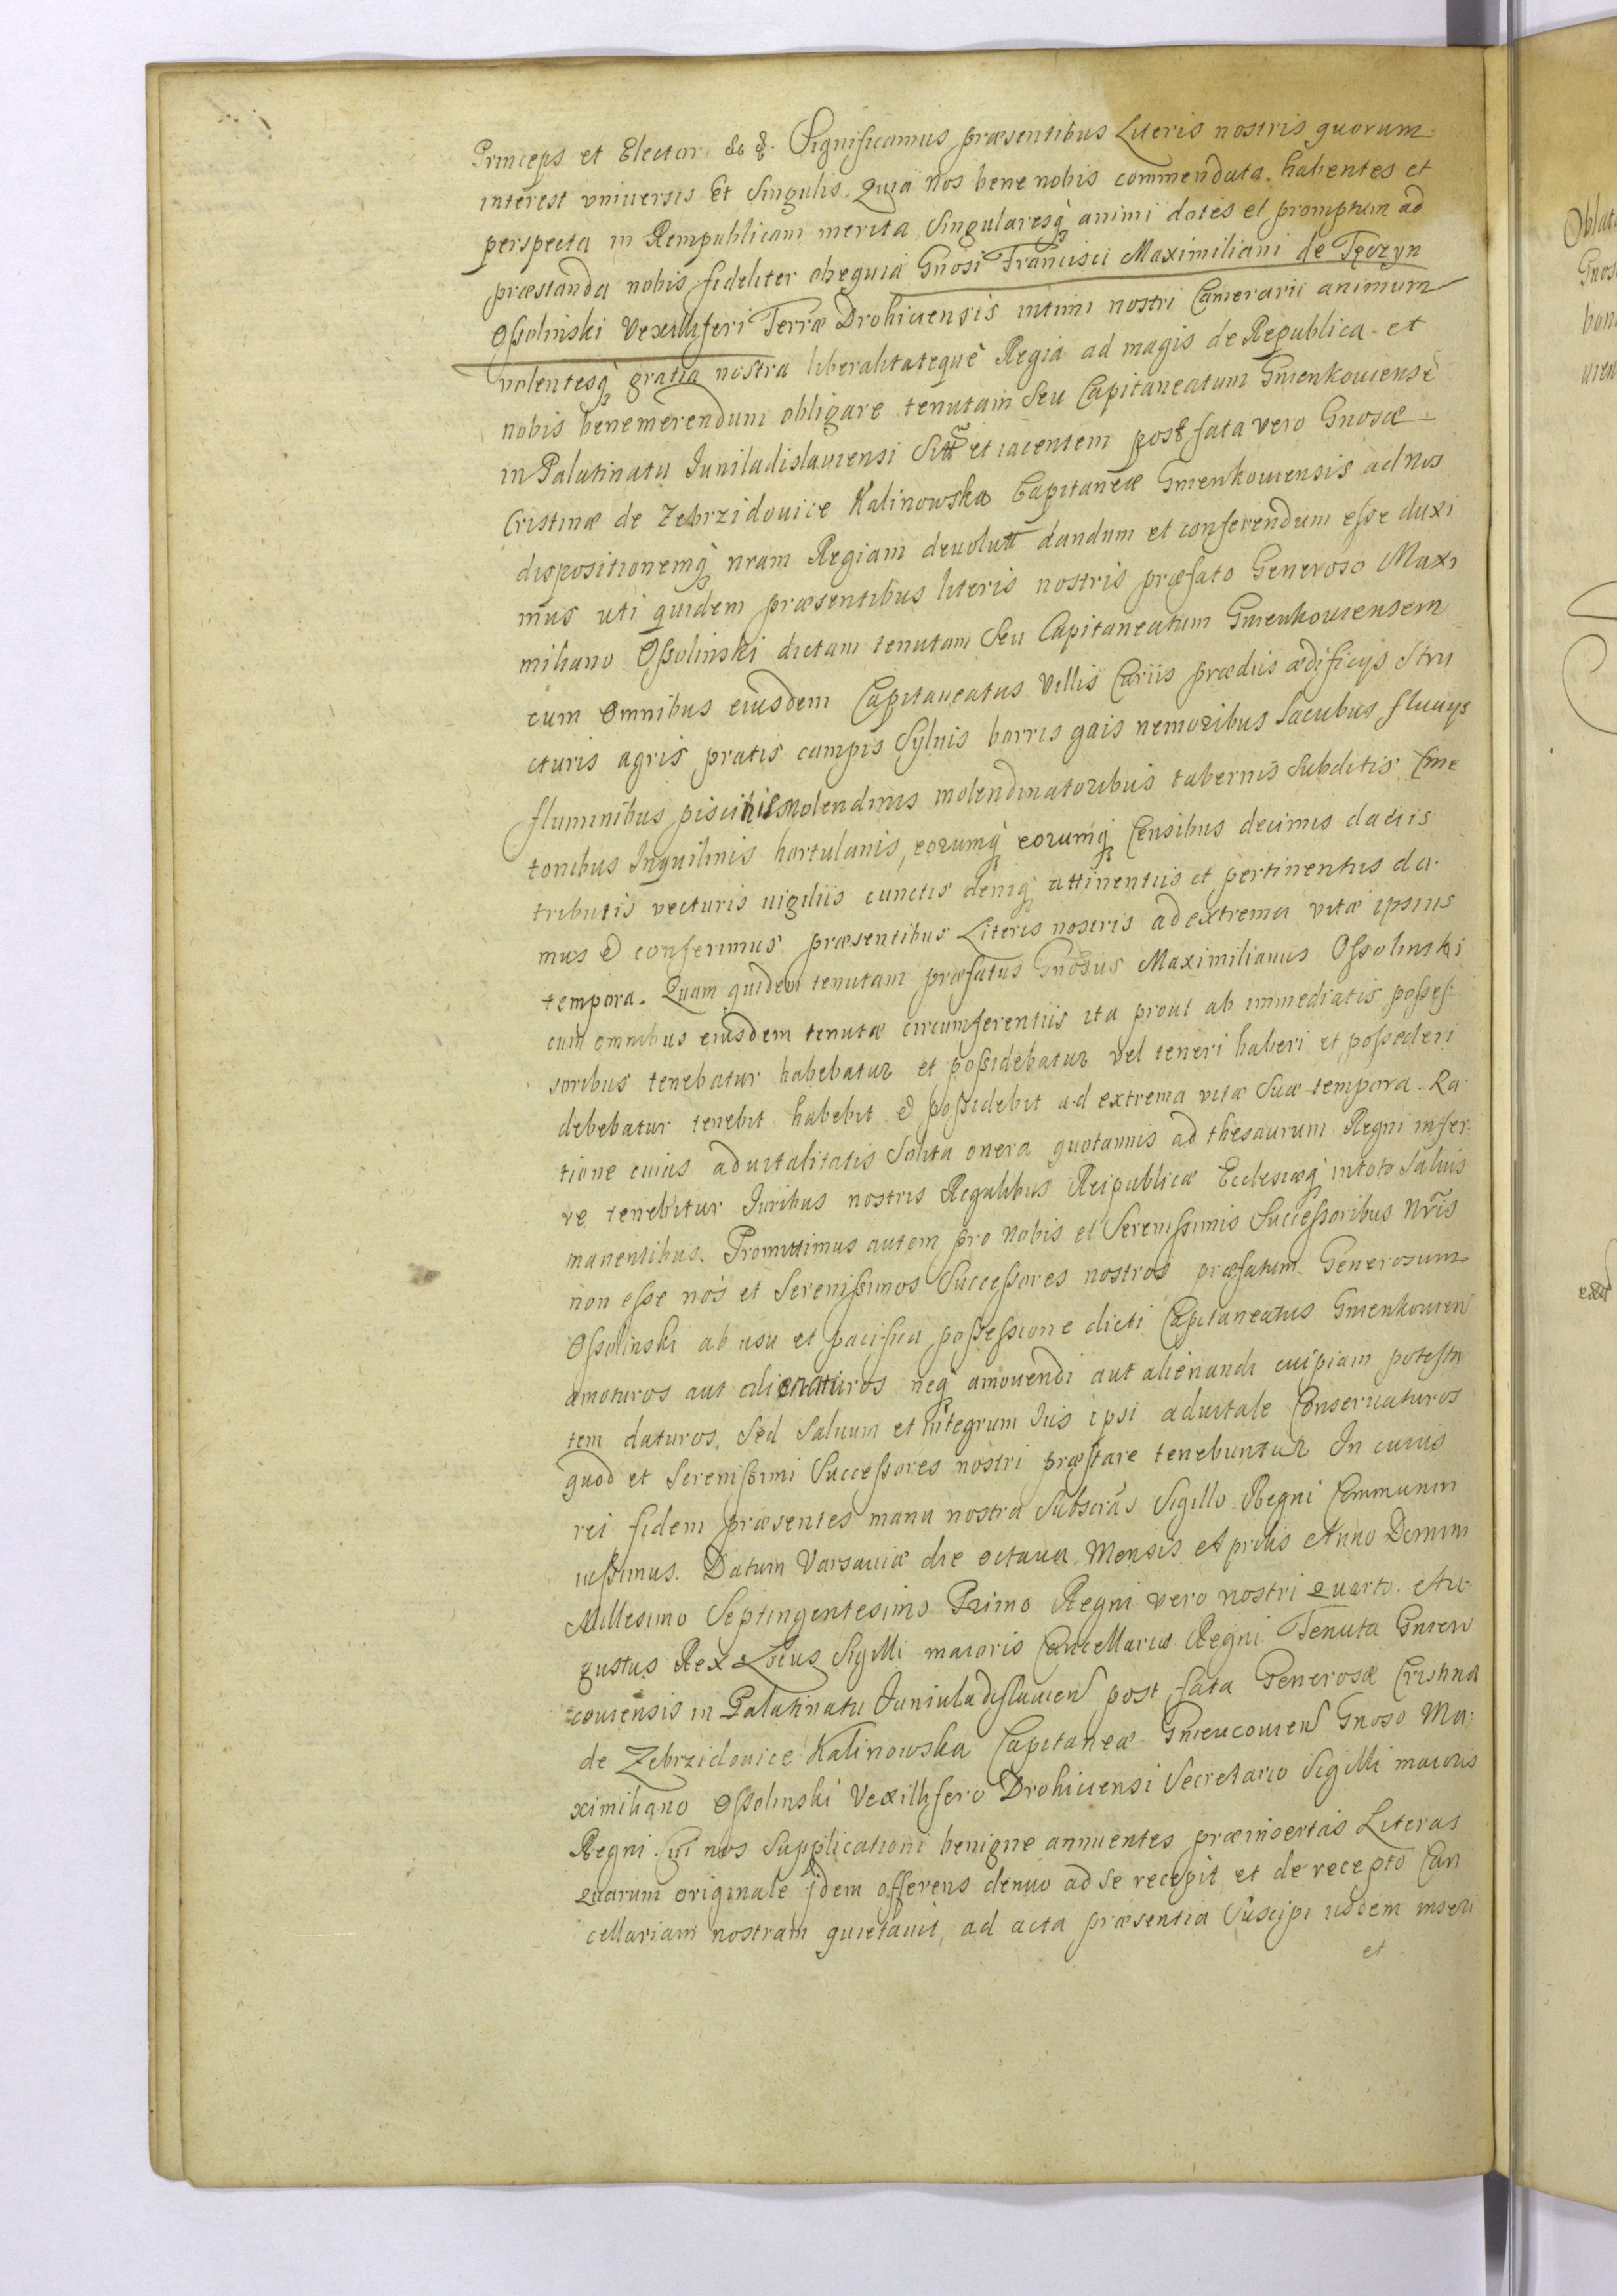 Princeps et Elector &c &c. Significamus præsentibus Literis nostris quorum
interest vniuersis Et Singulis Quia Nos bene nobis commendata habentes et
perspecta in Rempublicam merita Singularesq̀ animi dotes et promptum ad
præstanda nobis fideliter obsequia Gnosi Francisci Maximiliani de Tęczyn
Ossolinski Vexilliferi Terræ Drohiciensis intimi nostri Camerarii animum
volentesq̀ gratia nostra liberalitatequè Regia ad magis de Republica et
nobis benemerendum obligare tenutam Seu Capitaneatum Gniewkouiense
in Palatinatu Juniuladislauiensi Sittã et iacentem post fata vero Gnosæ
Cristinæ de Zebrzidouice Kalinowska Capitaneæ Gniewkouiensis ad nos
dispositionemq̀ nram Regiam deuolutt dandum et conferendum esse duxi
mus uti quidem præsentibus literis nostris præfato Generoso Maxi
miliano Ossolinski dictam tenutam Seu Capitaneatum Gniewkouiensem
cum Omnibus eiusdem Capitaneatus Villis Curiis prædiis ædificijs Stru
cturis agris pratis campis Syluis borris gais nemoribus Lacubus fluuijs
fluminibus piscinis molendinis molendinatoribus tabernis Subditis Cme
tonibus Inquilinis hortulanis, eorumq̀ eorumq̀ Censibus decimis daciis
tributis vecturis uigiliis cunctis deniq̀ attinentiis et pertinentiis da
mus & conferimus præsentibus Literis nostris ad extrema vitæ ipsius
tempora. Quam quidem tenutam præfatus Gnosus Maximilianus Ossolinski
cum omnibus eiusdem tenutæ circumferentiis ita prout ab immediatis posses
soribus tenebatur habebatur et possidebatur vel teneri haberi et possederi
debebatur tenebit habebit & possidebit ad extrema vitæ Suæ tempora. Ra
tione cuius aduitalitatis Solita onera quotannis ad thesaurum Regni infer
re tenebitur Juribus nostris Regalibus Reipublicæ Ecclesiæq̀ in toto Saluis
manentibus. Promittimus autem pro Nobis et Serenissimis Successoribus Nris
non esse nos et Serenissimos Successores nostros præfatum Generosum
Ossolinski ab usu et pacifica possessione dicti Capitaneatus Gniewkouien
amoturos aut alienaturos neq̀ amouendi aut alienandi cuipiam potesta
tem daturos, Sed Saluum et integrum Jus ipsi aduitale Conseruaturos
quod et Serenissimi Successores nostri præstare tenebuntur In cuius
rei fidem præsentes manu nostra Subscras Sigillo Regni Communiri
iussimus. Datum Varsauiæ die octaua Mensis Aprilis Anno Domini
Millesimo Septingentesimo Primo Regni vero nostri Quarto. Au
gustus Rex Locus Sigilli maioris Cancellariæ Regni Tenuta Gniew
couiensis in Palatinatu Juniuladislauien post fata Generosæ Cristina
de Zebrzidouice Kalinowska Capitaneæ Gniewcouien Gnoso Ma
ximiliano Ossolinski Vexillifero Drohiciensi Secretario Sigilli maioris
Regni. Cui nos Supplicationi benigne annuentes præinsertas Literas
Quarum originale Jdem offerens denuo ad se recepit et de recepto Can
cellariam nostram quietauit, ad acta præsentia Suscipi iisdem inseri
et